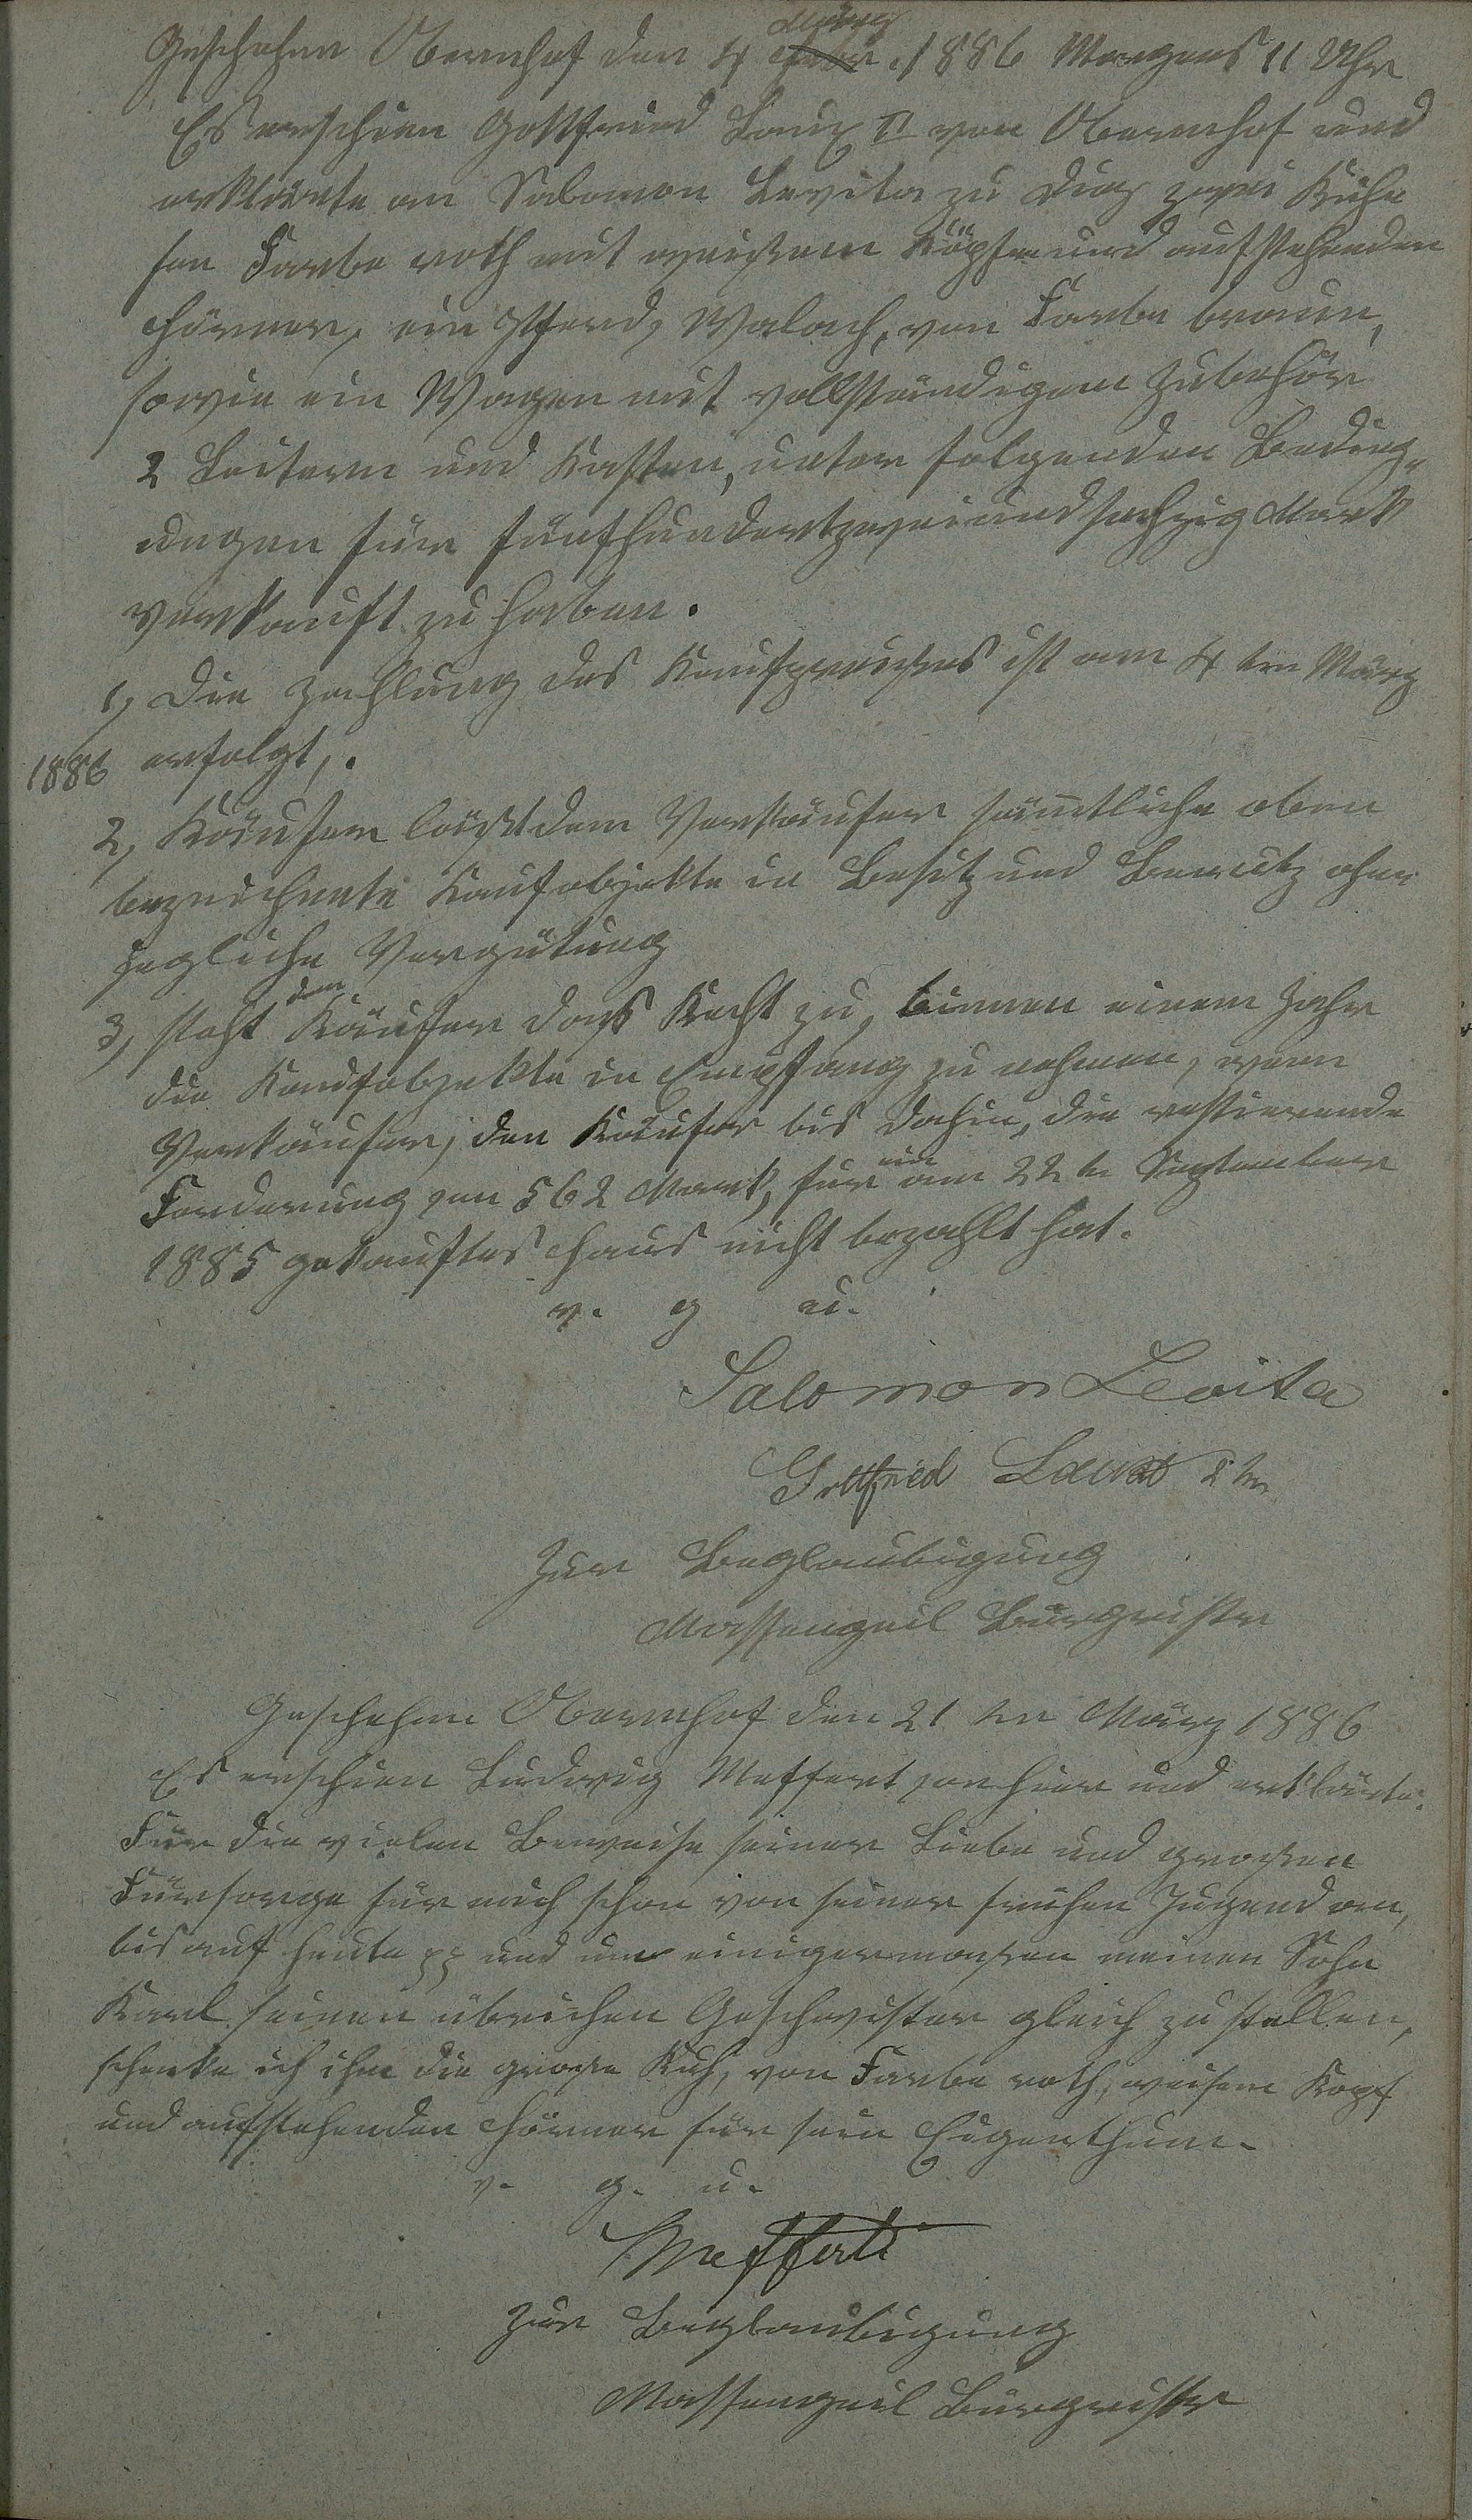 Geschehen Obernhof den 4 März 1886 Morgens 11 Uhr
Es erschien Gottfried Laux II von Obernhof und
erklärte an Salomon Levita zu Diez zwei Kühe
von Farbe roth mit weißem Köpfen und aufstehenden
Hörner, ein Pferd, Walach, von Farbe braun,
sowie ein Wagen mit vollständigem Zubehör
2 Leitern und Kasten, unter folgenden Beding-
ungen für fünfhundertzweiundsechzig Mark
verkauft zu haben.
1, Die Zahlung des Kaufpreises ist am 4ten März
1886 erfolgt,.
2, Käufer läßt dem Verkäufer sämtliche oben
bezeichnete Kaufobjekte in Besitz und Benutz ohne
jegliche Vergütung
3, steht dem Käufer das Recht zu, binnen einem Jahr
die Kaufobjekte in Empfang zu nehmen, wenn
Verkäufer, den Käufer bis dahin, die restierende
Forderung von 562 Mark, für ein am 22te September
1885 gekauftes Haus nicht bezahlt hat.
v. g u.
Salomon Levita
Gottfried Laux 2te
Zur Beglaubigung
Massengeil Bürgrmstr
Geschehen Obernhof den 21ten März 1886
Es erschien Ludwig Meffert von hier und erklärte:
Für die vielen Beweise seiner Liebe und großen
Fürsorge für mich schon von seiner frühen Jugend an,
bis auf heute pp und um einigermaßen meinen Sohn
Karl seinen übrichen Geschwister gleich zu stellen,
schenke ich ihm die große Kuh, von Farbe roth, weisem Kopf
und aufstehenden Hörner für sein Eigenthum.
v. g. u.
Meffert
Zur Beglaubigung
Massengeil Bürgrmstr